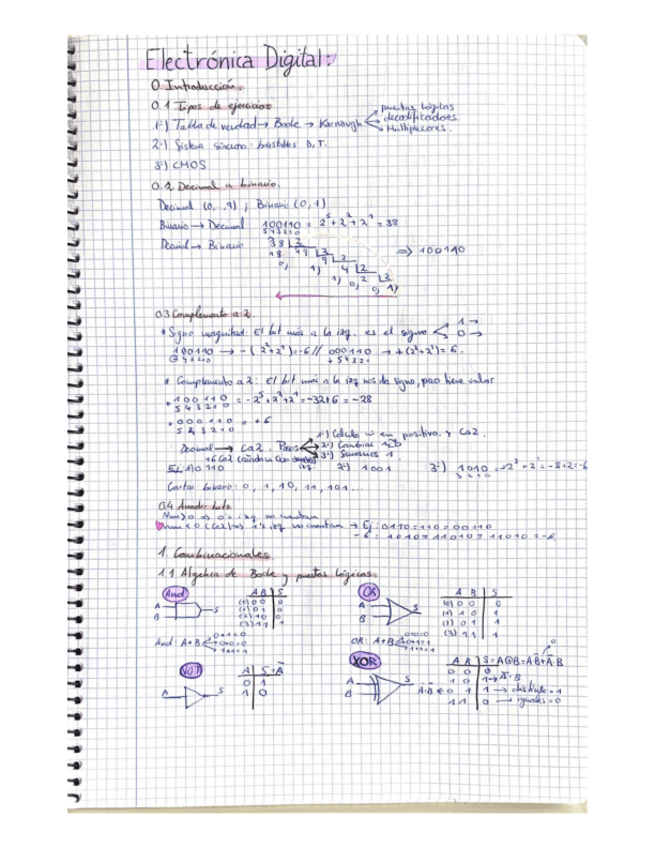 Electrónica Digital:
0. Introducción.
0.1 Tipos de ejercicios
1º) Tabla de verdad → Boole → Karnaugh
puertas lógicas
decodificadores
Multiplexores.
2º) Sistema síncrono: biestables D, T.
3º) CMOS
0.2 Decimal a binario.
Decimal (0, 9) ; Binario (0, 1)
Binario → Decimal 100110 = 2⁵ + 2² + 2¹ = 38
5 4 3 2 1 0
Decimal → Binario 38 |2 ⇒ 100110
0.3 Complemento a 2.
* Signo magnitud: El bit más a la izq. es el signo
1 →
0 →
100110 → - (2²+2¹) = -6 // 000110 → +(2²+2¹) = 6.
* Complemento a 2: El bit más a la izq nos da signo, pero tiene valor
• 100110 = -2⁵+2²+2¹ = -32+6 = -28
5 4 3 2 1 0
• 000110 = +6
5 4 3 2 1 0
Decimal → Ca2. Pasos
1º) Calculo en positivo y Ca2.
2º) Cambias 1→0
3º) Sumamos 1.
Ej: 1) 0110 2º) 1001 3º) 1010
Contar binario: 0, 1, 10, 11, 101...
0.4 Añadir bits
Num > 0 0's izq no cuentan
Num < 0 (Ca2) 1's izq no cuentan → Ej: 0110 = 110 = 00110
-6: 1010 = 11010 = 111010 = -6
1. Combinacionales
1.1 Algebra de Boole y puertas lógicas:
And
A B | S
(0) 0 0 | 0
(1) 0 1 | 0
(2) 1 0 | 0
(3) 1 1 | 1
A
B
S
And: A*B
0*1=0
0*0=0
1*1=1
OR
A B | S
(0) 0 0 | 0
(1) 1 0 | 1
(2) 0 1 | 1
(3) 1 1 | 1
A
B
S
OR: A+B
0+0=0
0+1=1
1+1=1
NOT
A | S=Ā
0 | 1
1 | 0
A
S
XOR
A B | S=A⊕B=AB̄+ĀB
0 0 | 0
1 0 | 1
0 1 | 1 → distinto=1
1 1 | 0 → iguales=0
A
B
S